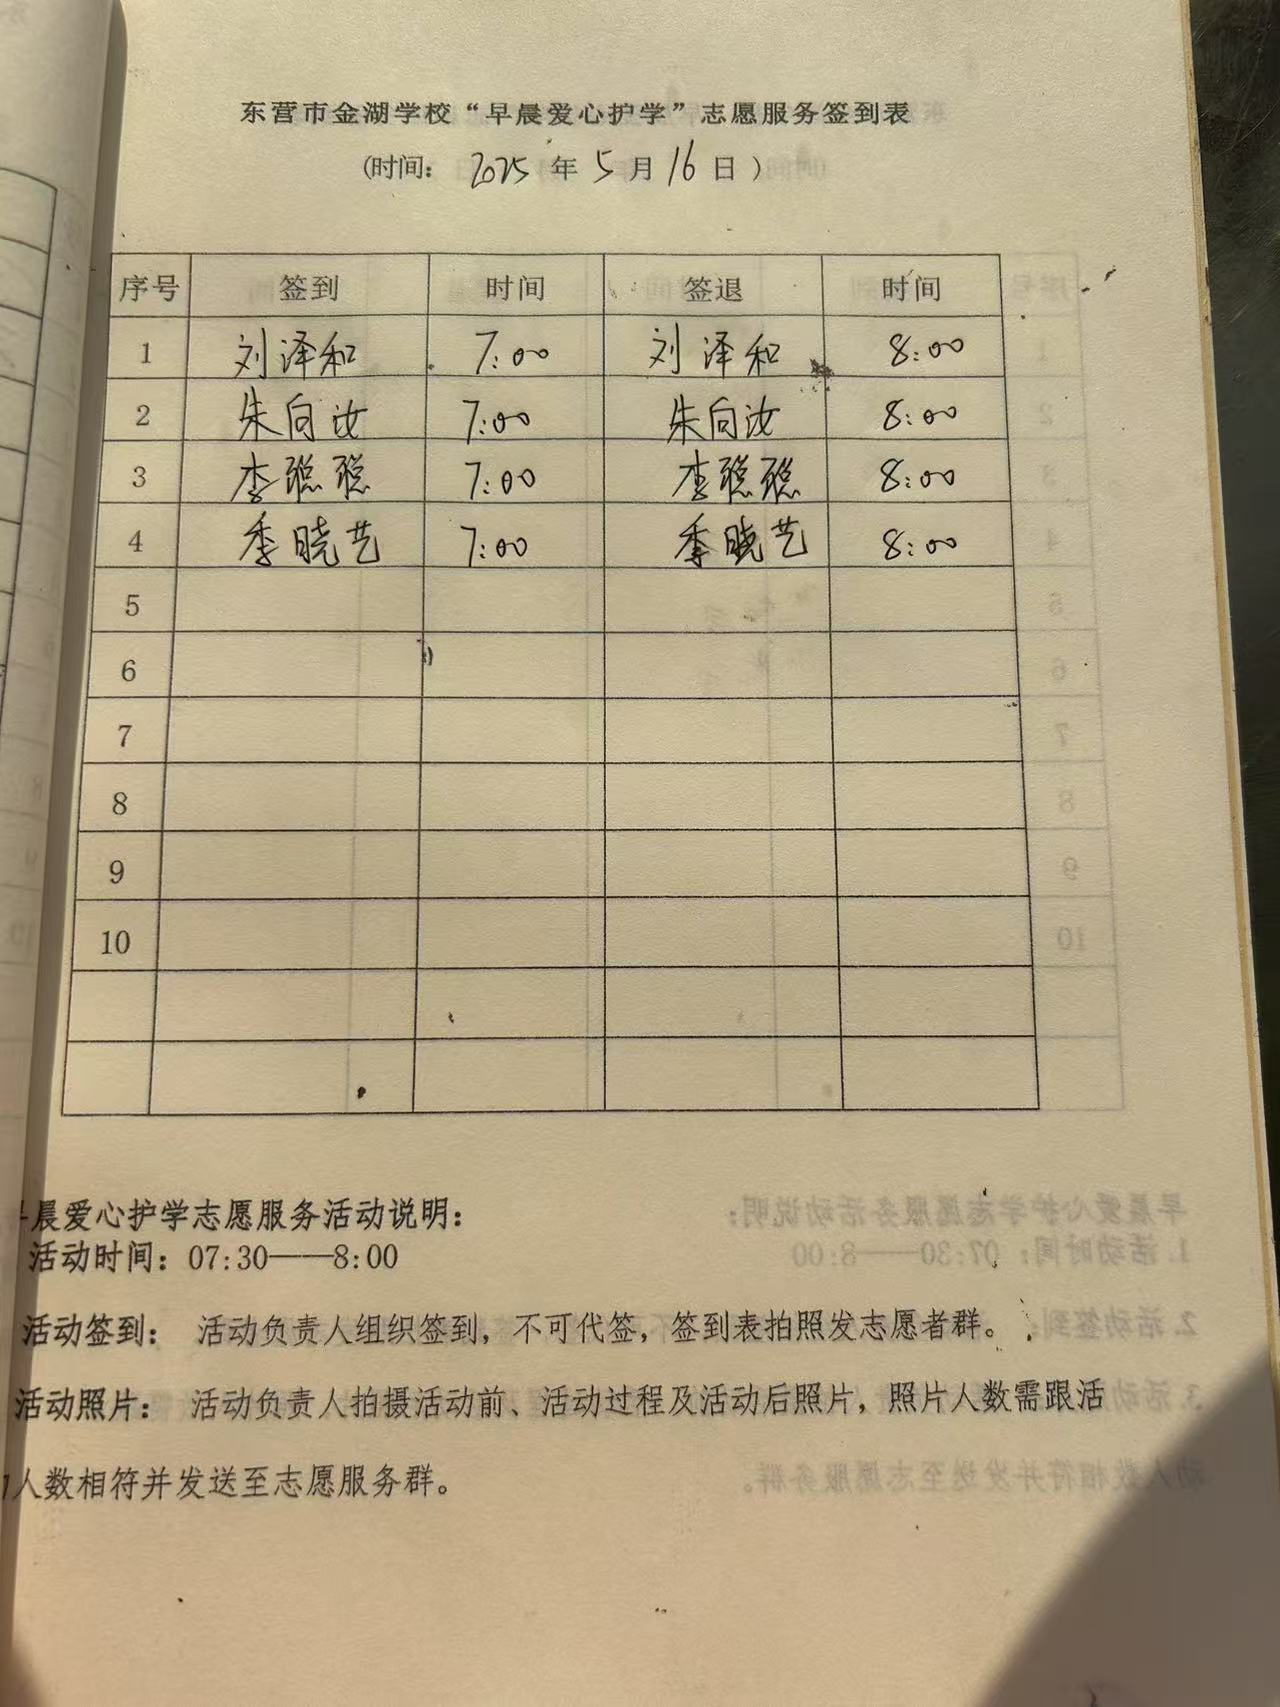 东营市金湖学校“早晨爱心护学”志愿服务签到表
(时间: 2025 年 5 月 16 日)
序号 签到 时间 签退 时间
1 刘泽和 7:00 刘泽和 8:00
2 朱向汝 7:00 朱向汝 8:00
3 李聪聪 7:00 李聪聪 8:00
4 季晓艺 7:00 季晓艺 8:00
5
6
7
8
9
10
晨爱心护学志愿服务活动说明:
活动时间: 07:30——8:00
活动签到: 活动负责人组织签到, 不可代签, 签到表拍照发志愿者群。
活动照片: 活动负责人拍摄活动前、活动过程及活动后照片, 照片人数需跟活
人数相符并发送至志愿服务群。